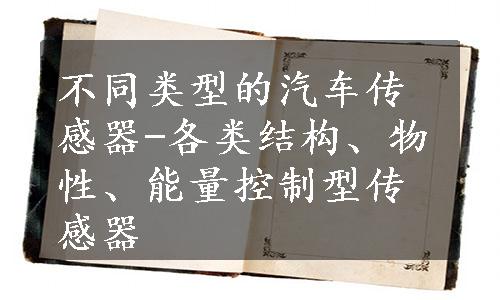 不同类型的汽车传
感器-各类结构、物
性、能量控制型传
感器